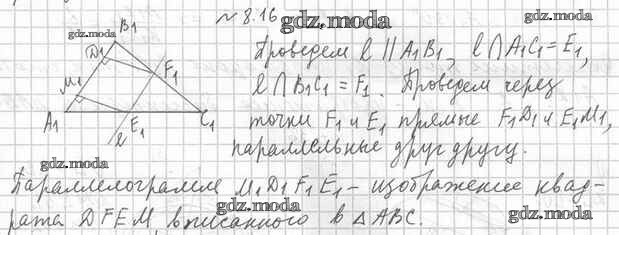 № 8.16
gdz.moda
B1
gdz.moda
D1
F1
M1
A1
E1
C1
ℓ
Проведем ℓ || A1B1, ℓ ∩ A1C1 = E1,
gdz.moda
ℓ ∩ B1C1 = F1. Проведем через
точки F1 и E1 прямые F1D1 и E1M1,
gdz.moda
параллельные друг другу.
gdz.moda
gdz.moda
Параллелограмм M1D1F1E1 – изображение квад-
gdz.moda
рата DFEM, вписанного в ΔABC.
gdz.moda
gdz.moda